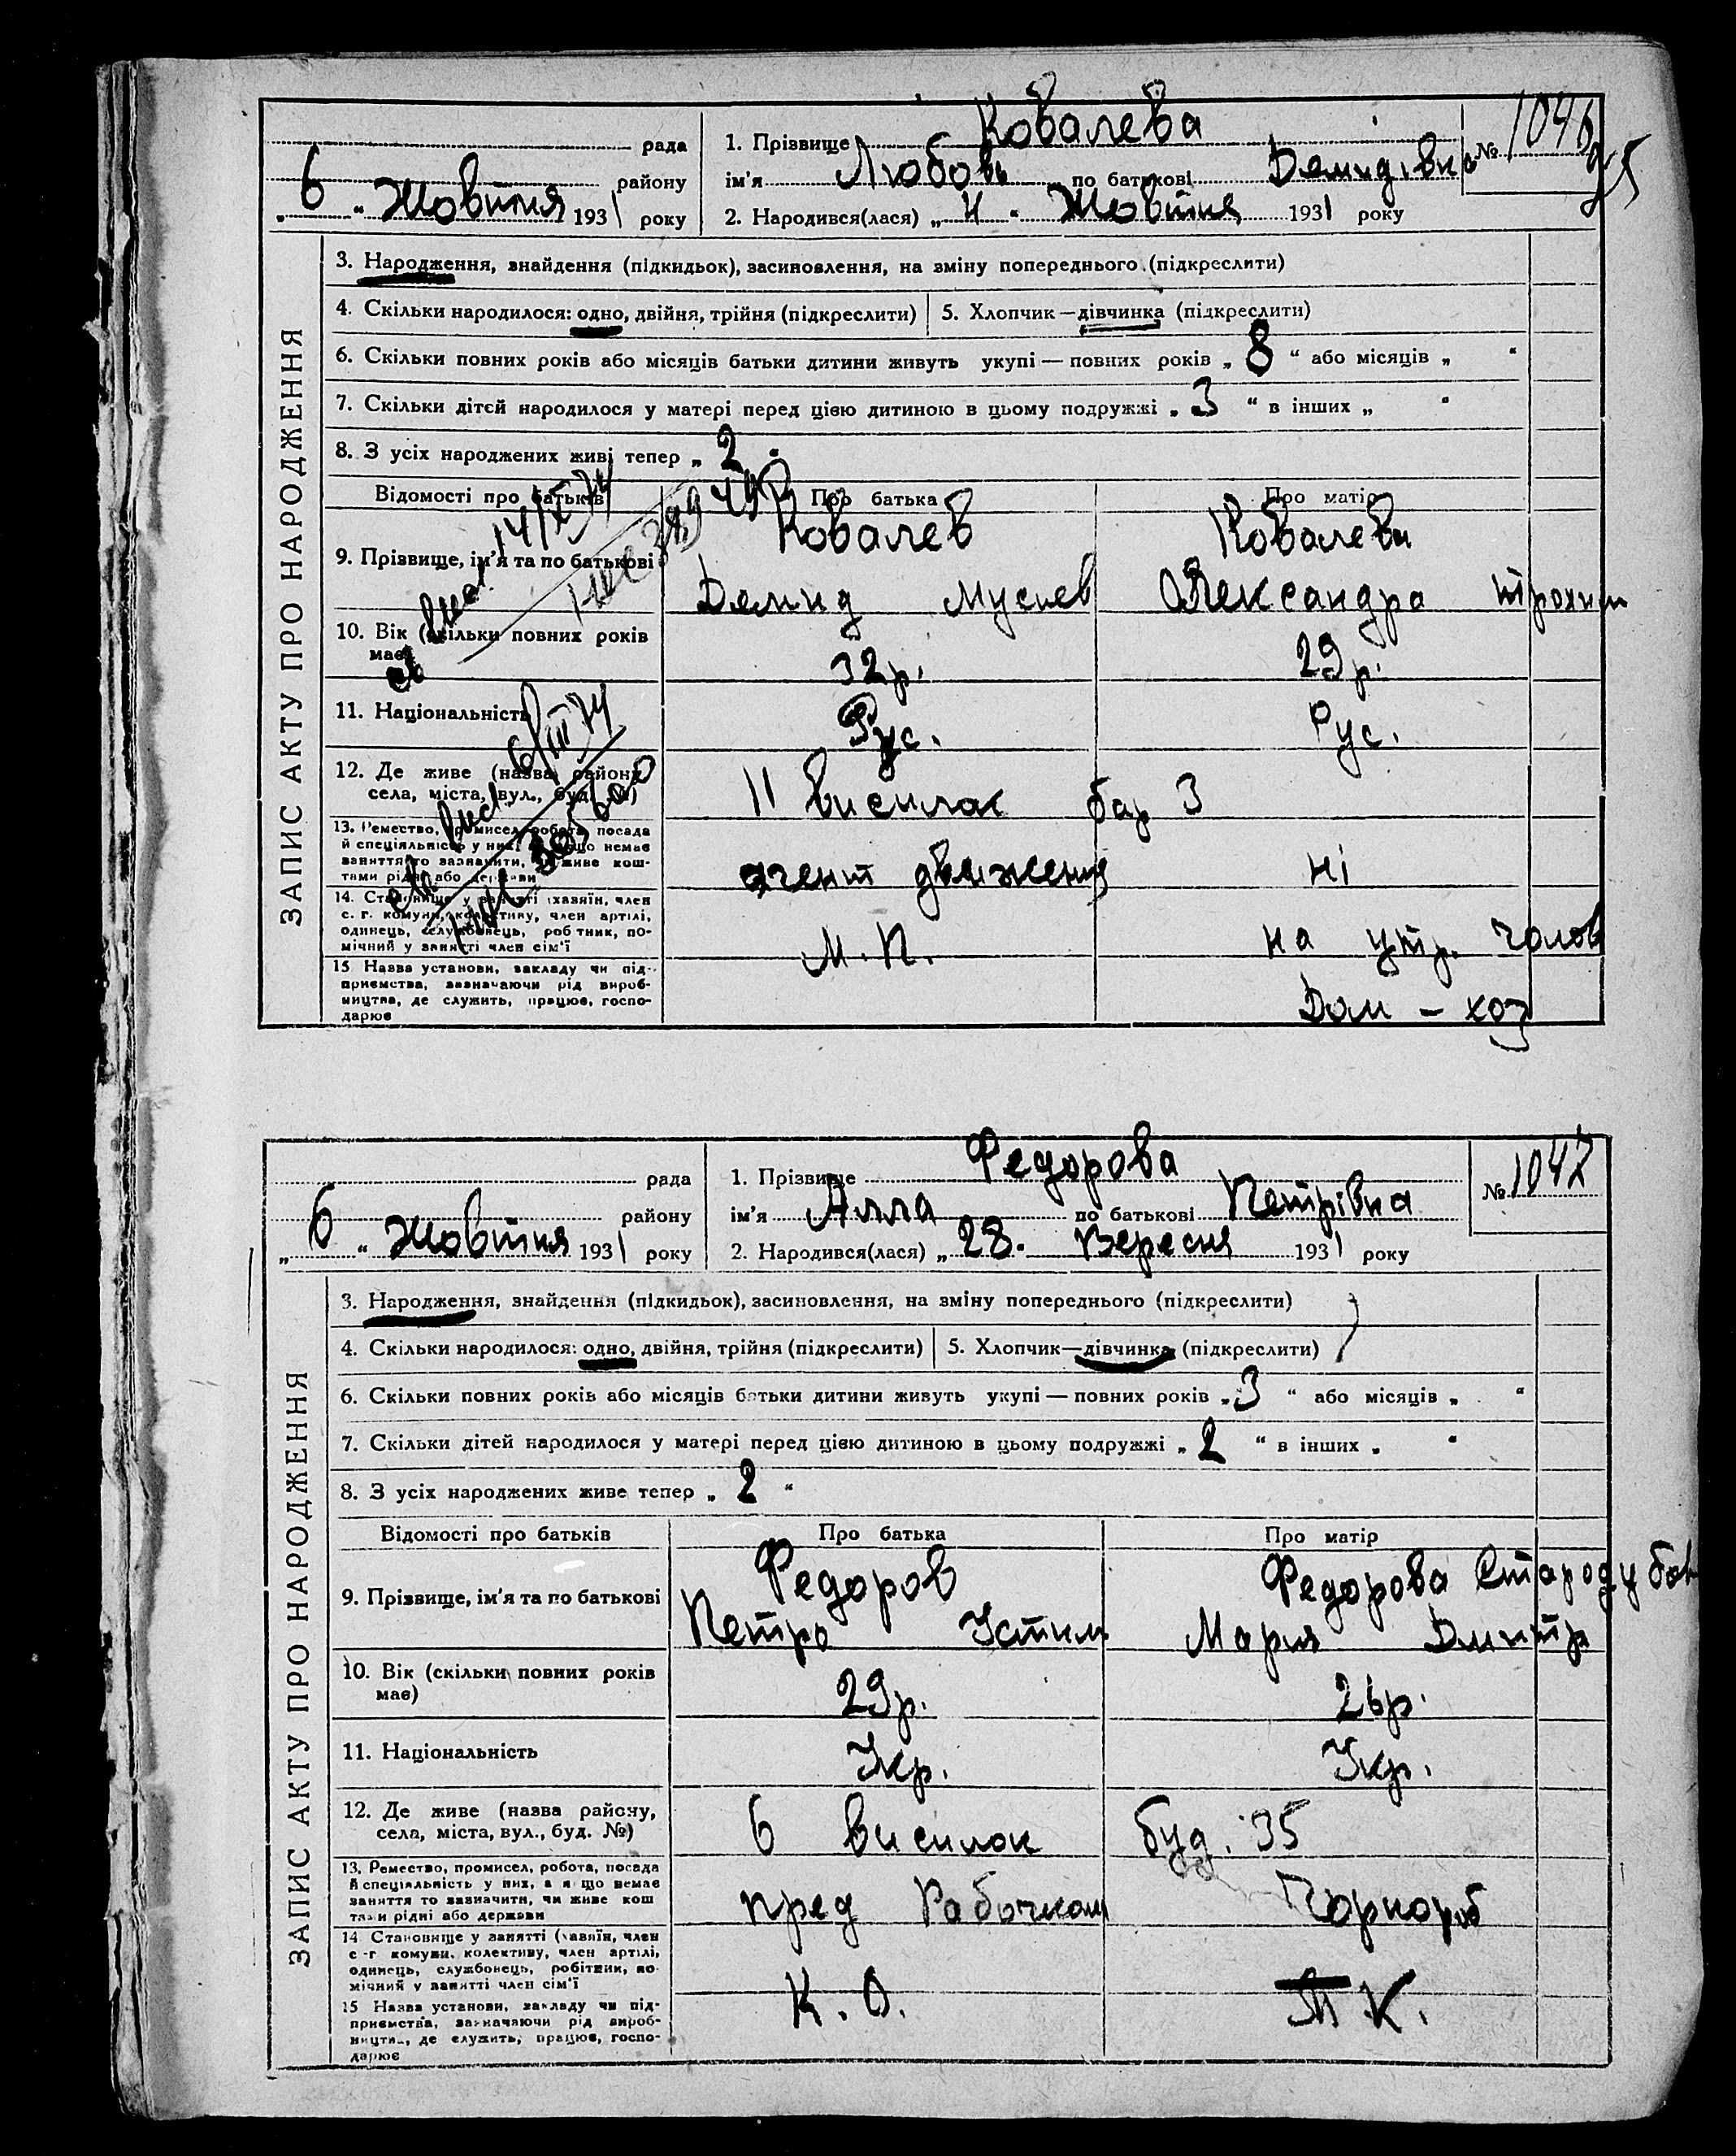 1. Прізвище Ковалева № 1046
рада
ім'я Любовь по батькові Демидівна
району
25
„ 6 “ Жовтня 1931 року 2. Народився(лася) „ 4 “ Жовтня 1931 року
ЗАПИС АКТУ ПРО НАРОДЖЕННЯ
3. Народження, знайдення (підкидьок), засиновлення, на зміну попереднього (підкреслити)
4. Скільки народилося: одно, двійня, трійня (підкреслити) 5. Хлопчик—дівчинка (підкреслити)
6. Скільки повних років або місяців батьки дитини живуть укупі — повних років „ 8 “ або місяців „ “
7. Скільки дітей народилося у матері перед цією дитиною в цьому подружжі „ 3 “ в інших „ “
8. З усіх народжених живі тепер „ 2 “
Відомості про батьків Про батька Про матір
14/X 74
Ковалев Ковалева
9. Прізвище, ім'я та по батькові
Демид Мусиев Олександра Трохим
10. Вік (скільки повних років
має) 32р. 29р.
11. Національність Рус. Рус.
6/III 74
12. Де живе (назва району,
села, міста, вул., буд. №) 11 виселок бар 3
13. Ремество, промисел, робота, посада
й спеціяльність у них, а якщо немає
заняття то зазначити, чи живе кош-
тами рідні або держави агент движения ні
14. Становище у занятті (хазяїн, член
с. г. комуни, колективу, член артілі,
одинець, службовець, робітник, по-
мічний у занятті член сім'ї М. П. на утр. чолов
15 Назва установи, закладу чи під-
приємства, зазначаючи рід вироб-
ництва, де служить, працює, госпо-
дарює Дом – хоз
1. Прізвище Федорова № 1047
рада
ім'я Алла по батькові Петрівна
району
„ 6 “ Жовтня 1931 року 2. Народився(лася) „ 28. Вересня 1931 року
ЗАПИС АКТУ ПРО НАРОДЖЕННЯ
3. Народження, знайдення (підкидьок), засиновлення, на зміну попереднього (підкреслити)
4. Скільки народилося: одно, двійня, трійня (підкреслити) 5. Хлопчик—дівчинка (підкреслити)
6. Скільки повних років або місяців батьки дитини живуть укупі — повних років „ 3 “ або місяців „ “
7. Скільки дітей народилося у матері перед цією дитиною в цьому подружжі „ 2 “ в інших „ “
8. З усіх народжених живе тепер „ 2 “
Відомості про батьків Про батька Про матір
Федоров Федорова Стародубов
9. Прізвище, ім'я та по батькові
Петро Устим Мария Дмитр
10. Вік (скільки повних років
має) 29р. 26р.
11. Національність Укр. Укр.
12. Де живе (назва району,
села, міста, вул., буд. №) 6 виселок буд. 35
13. Ремество, промисел, робота, посада
й спеціяльність у них, а якщо немає
заняття то зазначити, чи живе кош
тами рідні або держави пред Рабочком Чорнороб
14 Становище у занятті (хавяїн, член
с-г комуни, колективу, член артілі,
одинець, службовець, робітник, по-
мічний у занятті член сім'ї К. О. К.
15 Назва установи, закладу чи під-
приємства, зазначаючи рід вироб-
ництва, де служить, працює, госпо-
дарює